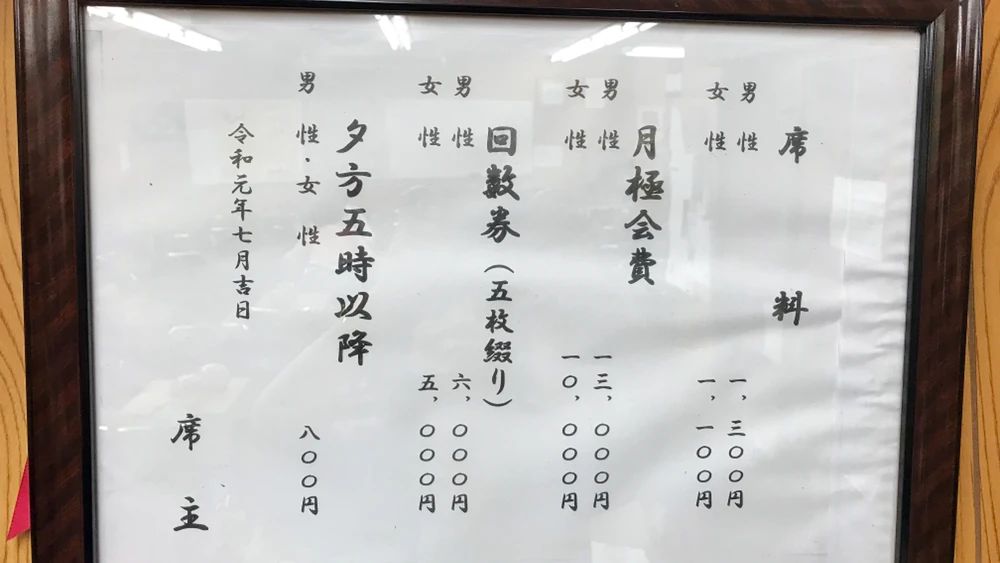 席料
男性 一,三〇〇円
女性 一,一〇〇円
月極会費
男性 一三,〇〇〇円
女性 一〇,〇〇〇円
回数券(五枚綴り)
男性 六,〇〇〇円
女性 五,〇〇〇円
夕方五時以降
男性・女性 八〇〇円
令和元年七月吉日
席主